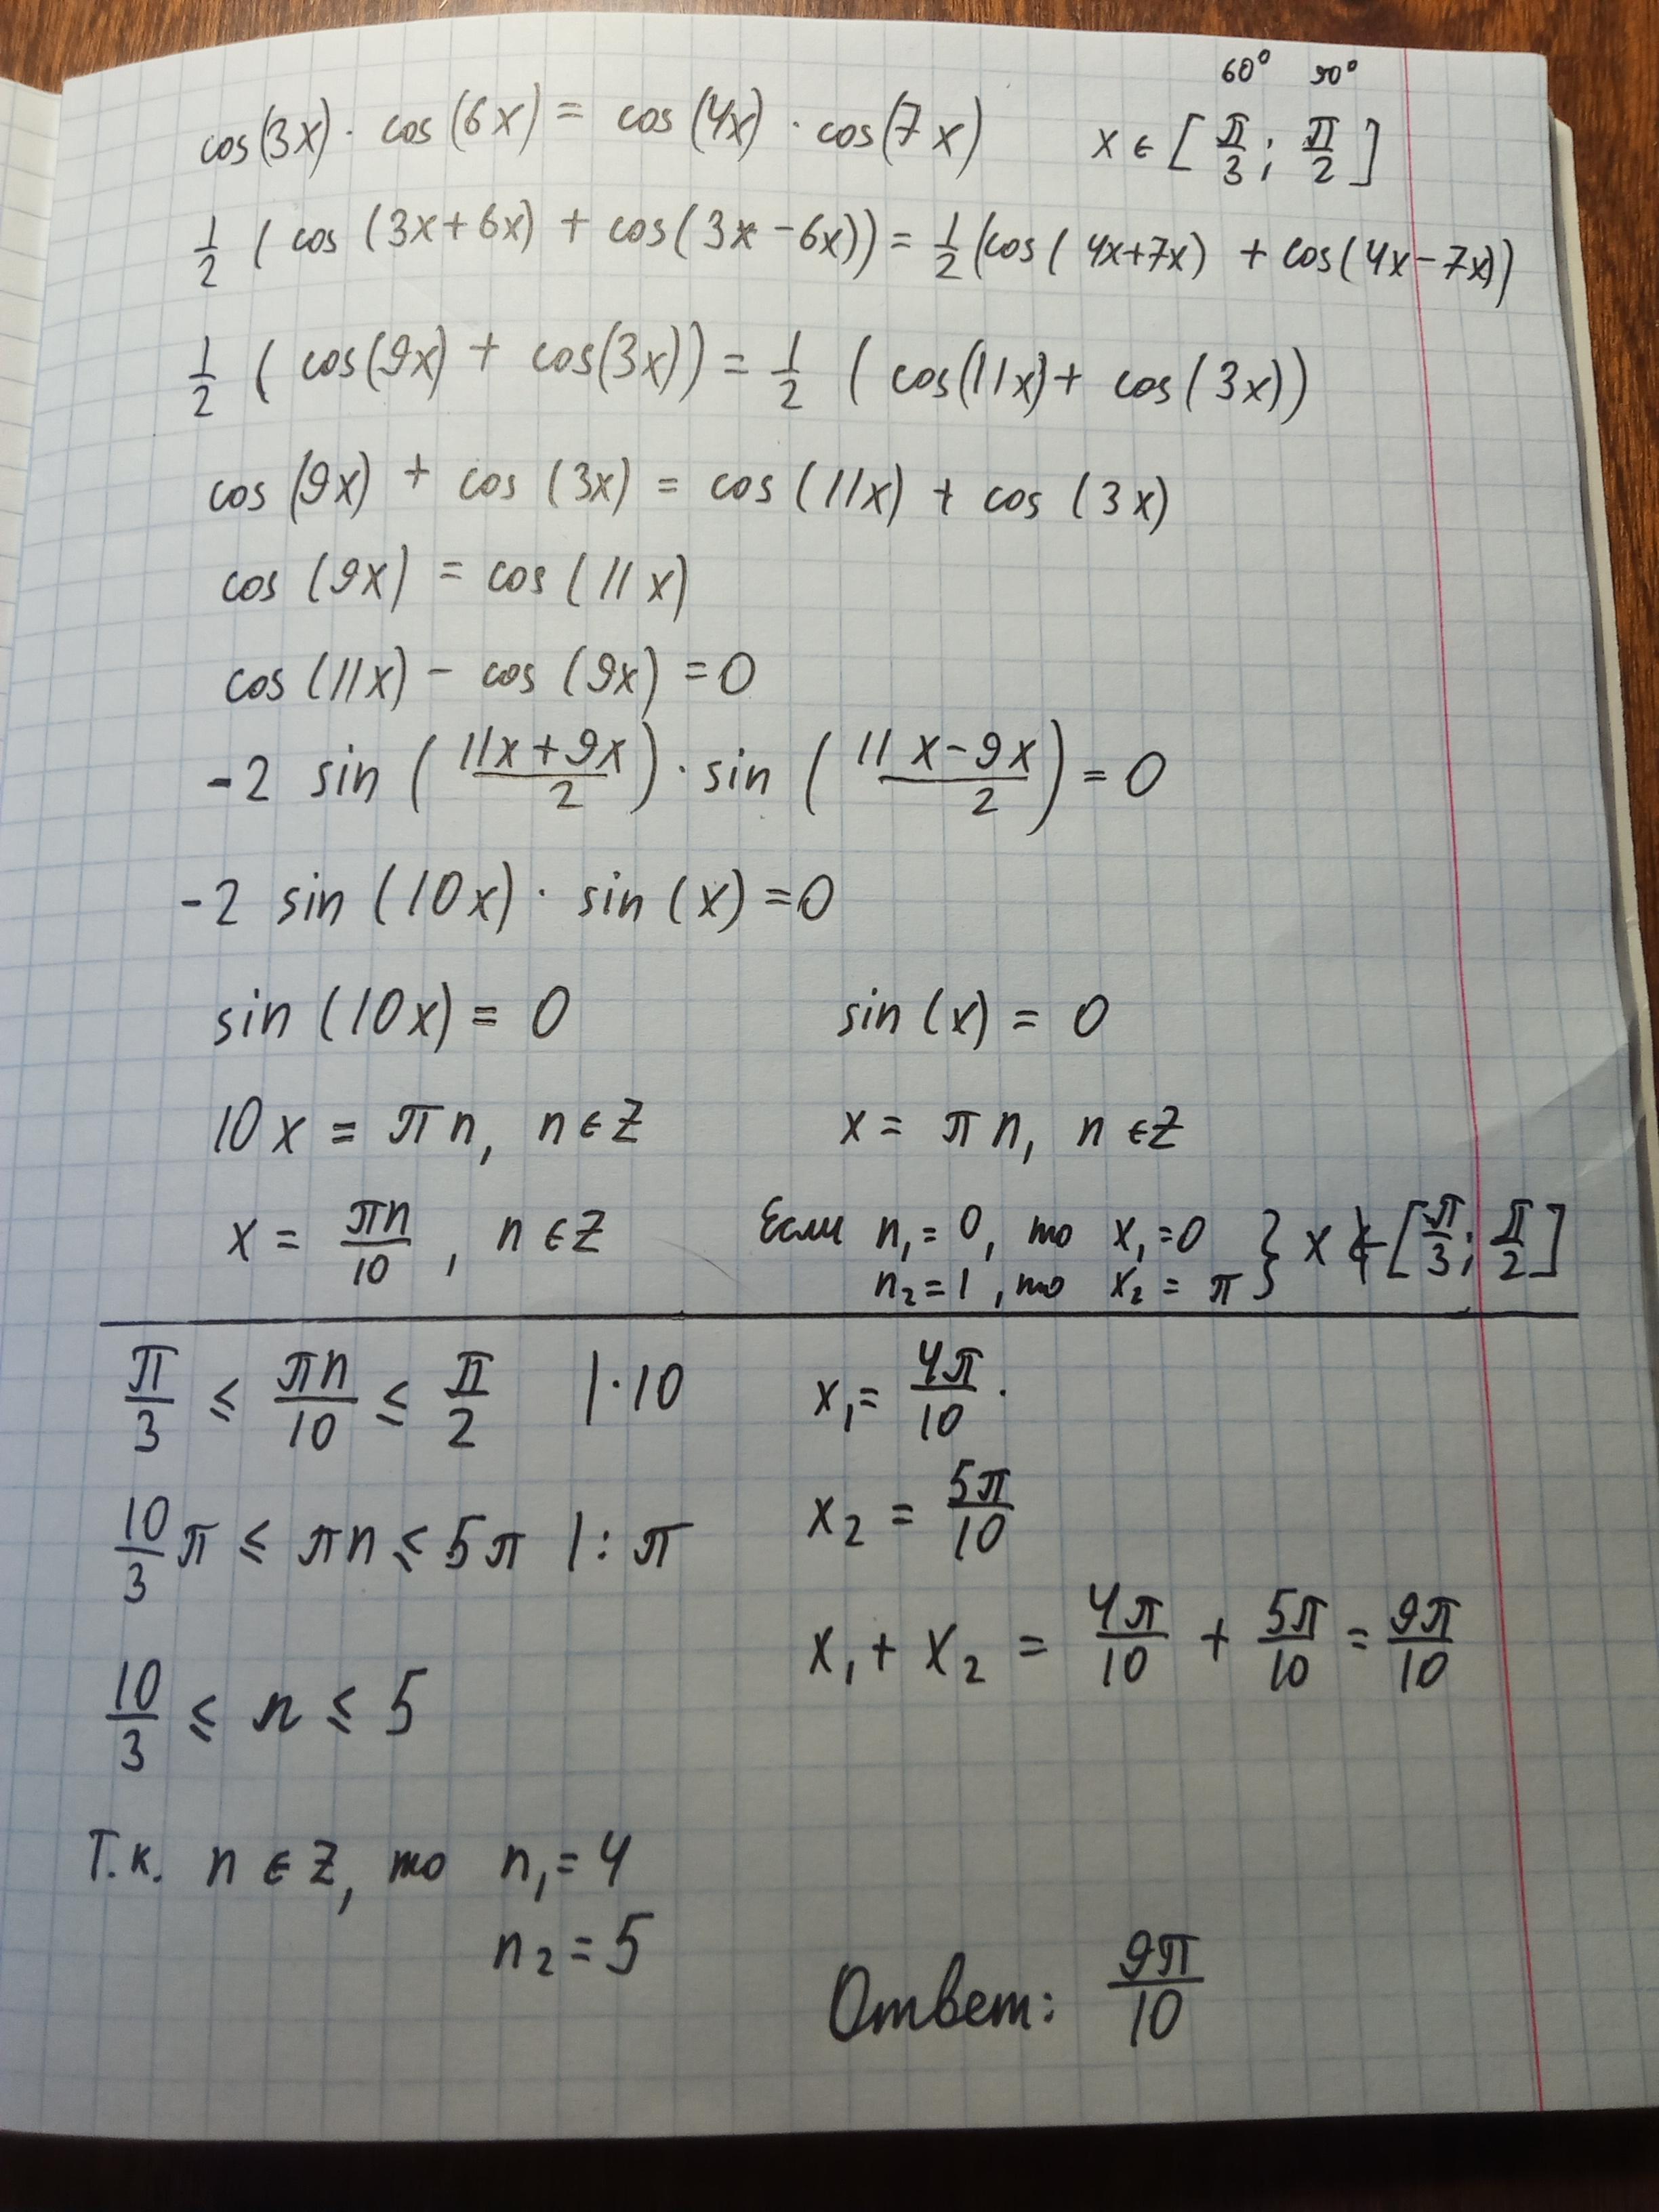 60° 90°
cos(3x) · cos(6x) = cos(4x) · cos(7x) x ∈ [π/3; π/2]
1/2 (cos(3x+6x) + cos(3x-6x)) = 1/2 (cos(4x+7x) + cos(4x-7x))
1/2 (cos(9x) + cos(3x)) = 1/2 (cos(11x) + cos(3x))
cos(9x) + cos(3x) = cos(11x) + cos(3x)
cos(9x) = cos(11x)
cos(11x) - cos(9x) = 0
-2 sin((11x+9x)/2) · sin((11x-9x)/2) = 0
-2 sin(10x) · sin(x) = 0
sin(10x) = 0 sin(x) = 0
10x = πn, n ∈ Z x = πn, n ∈ Z
x = πn/10, n ∈ Z Если n₁ = 0, то x₁ = 0
n₂ = 1, то x₂ = π } x ∉ [π/3; π/2]
π/3 ≤ πn/10 ≤ π/2 | · 10
10/3 π ≤ πn ≤ 5π | : π
10/3 ≤ n ≤ 5
Т.к. n ∈ Z, то n₁ = 4
n₂ = 5
x₁ = 4π/10.
x₂ = 5π/10
x₁ + x₂ = 4π/10 + 5π/10 = 9π/10
Ответ: 9π/10